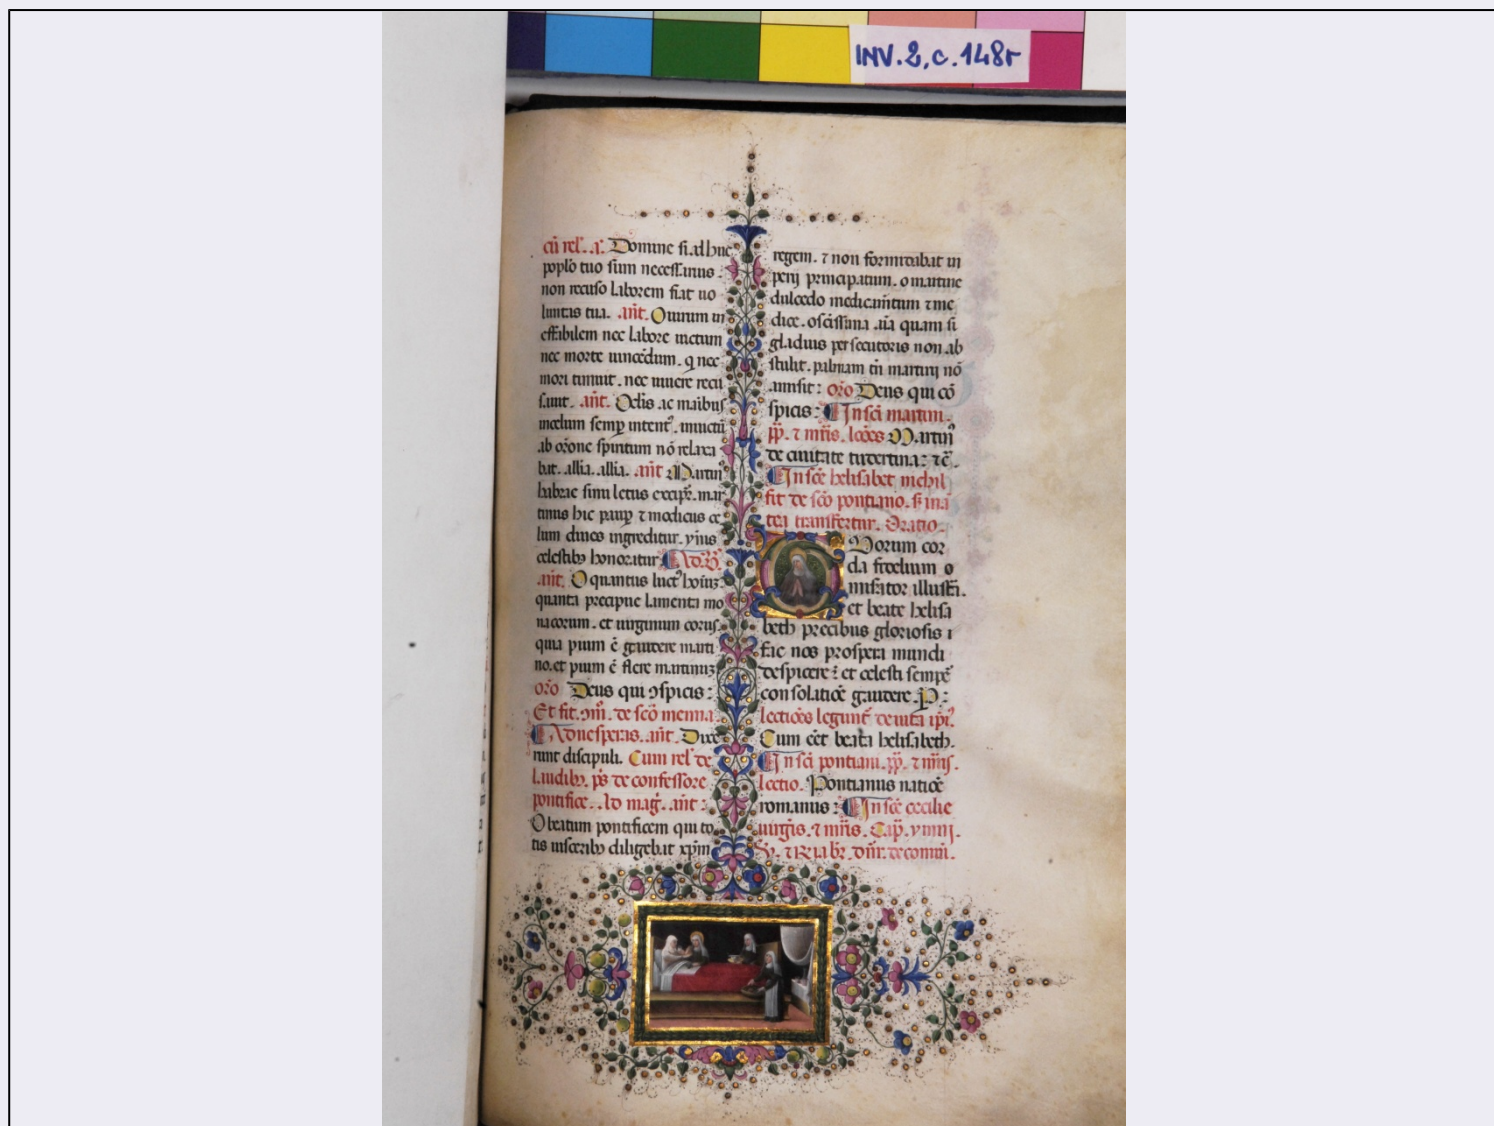 INV. 2, c. 148r
cū rel'. a'. Domine si adhuc
populo tuo sum necessarius.
non recuso laborem fiat uo
luntas tua. añt. O uirum in
effabilem nec labore uictum
nec morte uincēdum. q nec
mori timuit. nec uiuere recu
sauit. añt. Oclis ac maībus
in celum semp intent'. inuictū
ab orōne spiritum nō relaxa
bat. allia. allia. añt Martin'
habrae sinu letus excipr̄. mar
tinus hic paup̄ ⁊ modicus ce
lum diues ingreditur. ymis
celestibꝫ honoratur Ad
añt. O quantus luct' hoīuꝫ
quanta precipue lamenta mo
nacorum. et uirginum corus.
quia pium ē gaudere marti
no. et pium ē flere martinuꝫ
orō Deus qui ɔspicis:
Et fit ɔm̄. de scō menna.
Ad uesperas. añt. Dixe
runt discipuli. Cum rel' de
laudibꝫ. ps̄ de confessore
pontifice. Ad maḡ. añt:
O beatum pontificem qui to
tis uisceribꝫ diligebat xp̄m
regem. ⁊ non formidabat im
perij principatum. o martine
dulcedo medicam̄tum ⁊ me
dice. o sc̄issima aīa quam si
gladius persecutoris non ab
stulit. palmam tn̄ martirij nō
amisit: orō Deus qui cō
spicis: In scī martini.
pp̄. ⁊ mr̄is. lcōes Martin'
de ciuitate tudertina: ⁊c̄.
In scē helisabet nichil
fit de scō pontiano. s̄ in a
lia transfertur. Oratio.
Tuorum cor
da fidelium o
miserator illustra.
et beate helisa
beth precibus gloriosis
fac nos prospera mundi
despicere: et celesti sempe
consolatiōe gaudere. P:
lectiōes legunt' de uita ipi'.
Cum eēt beata helisabeth.
In scī pontiani. pp̄. ⁊ mr̄is.
lectio. Pontianus natiōe
romanus: In scē cecilie
uirgīs. ⁊ mr̄is. Cap.